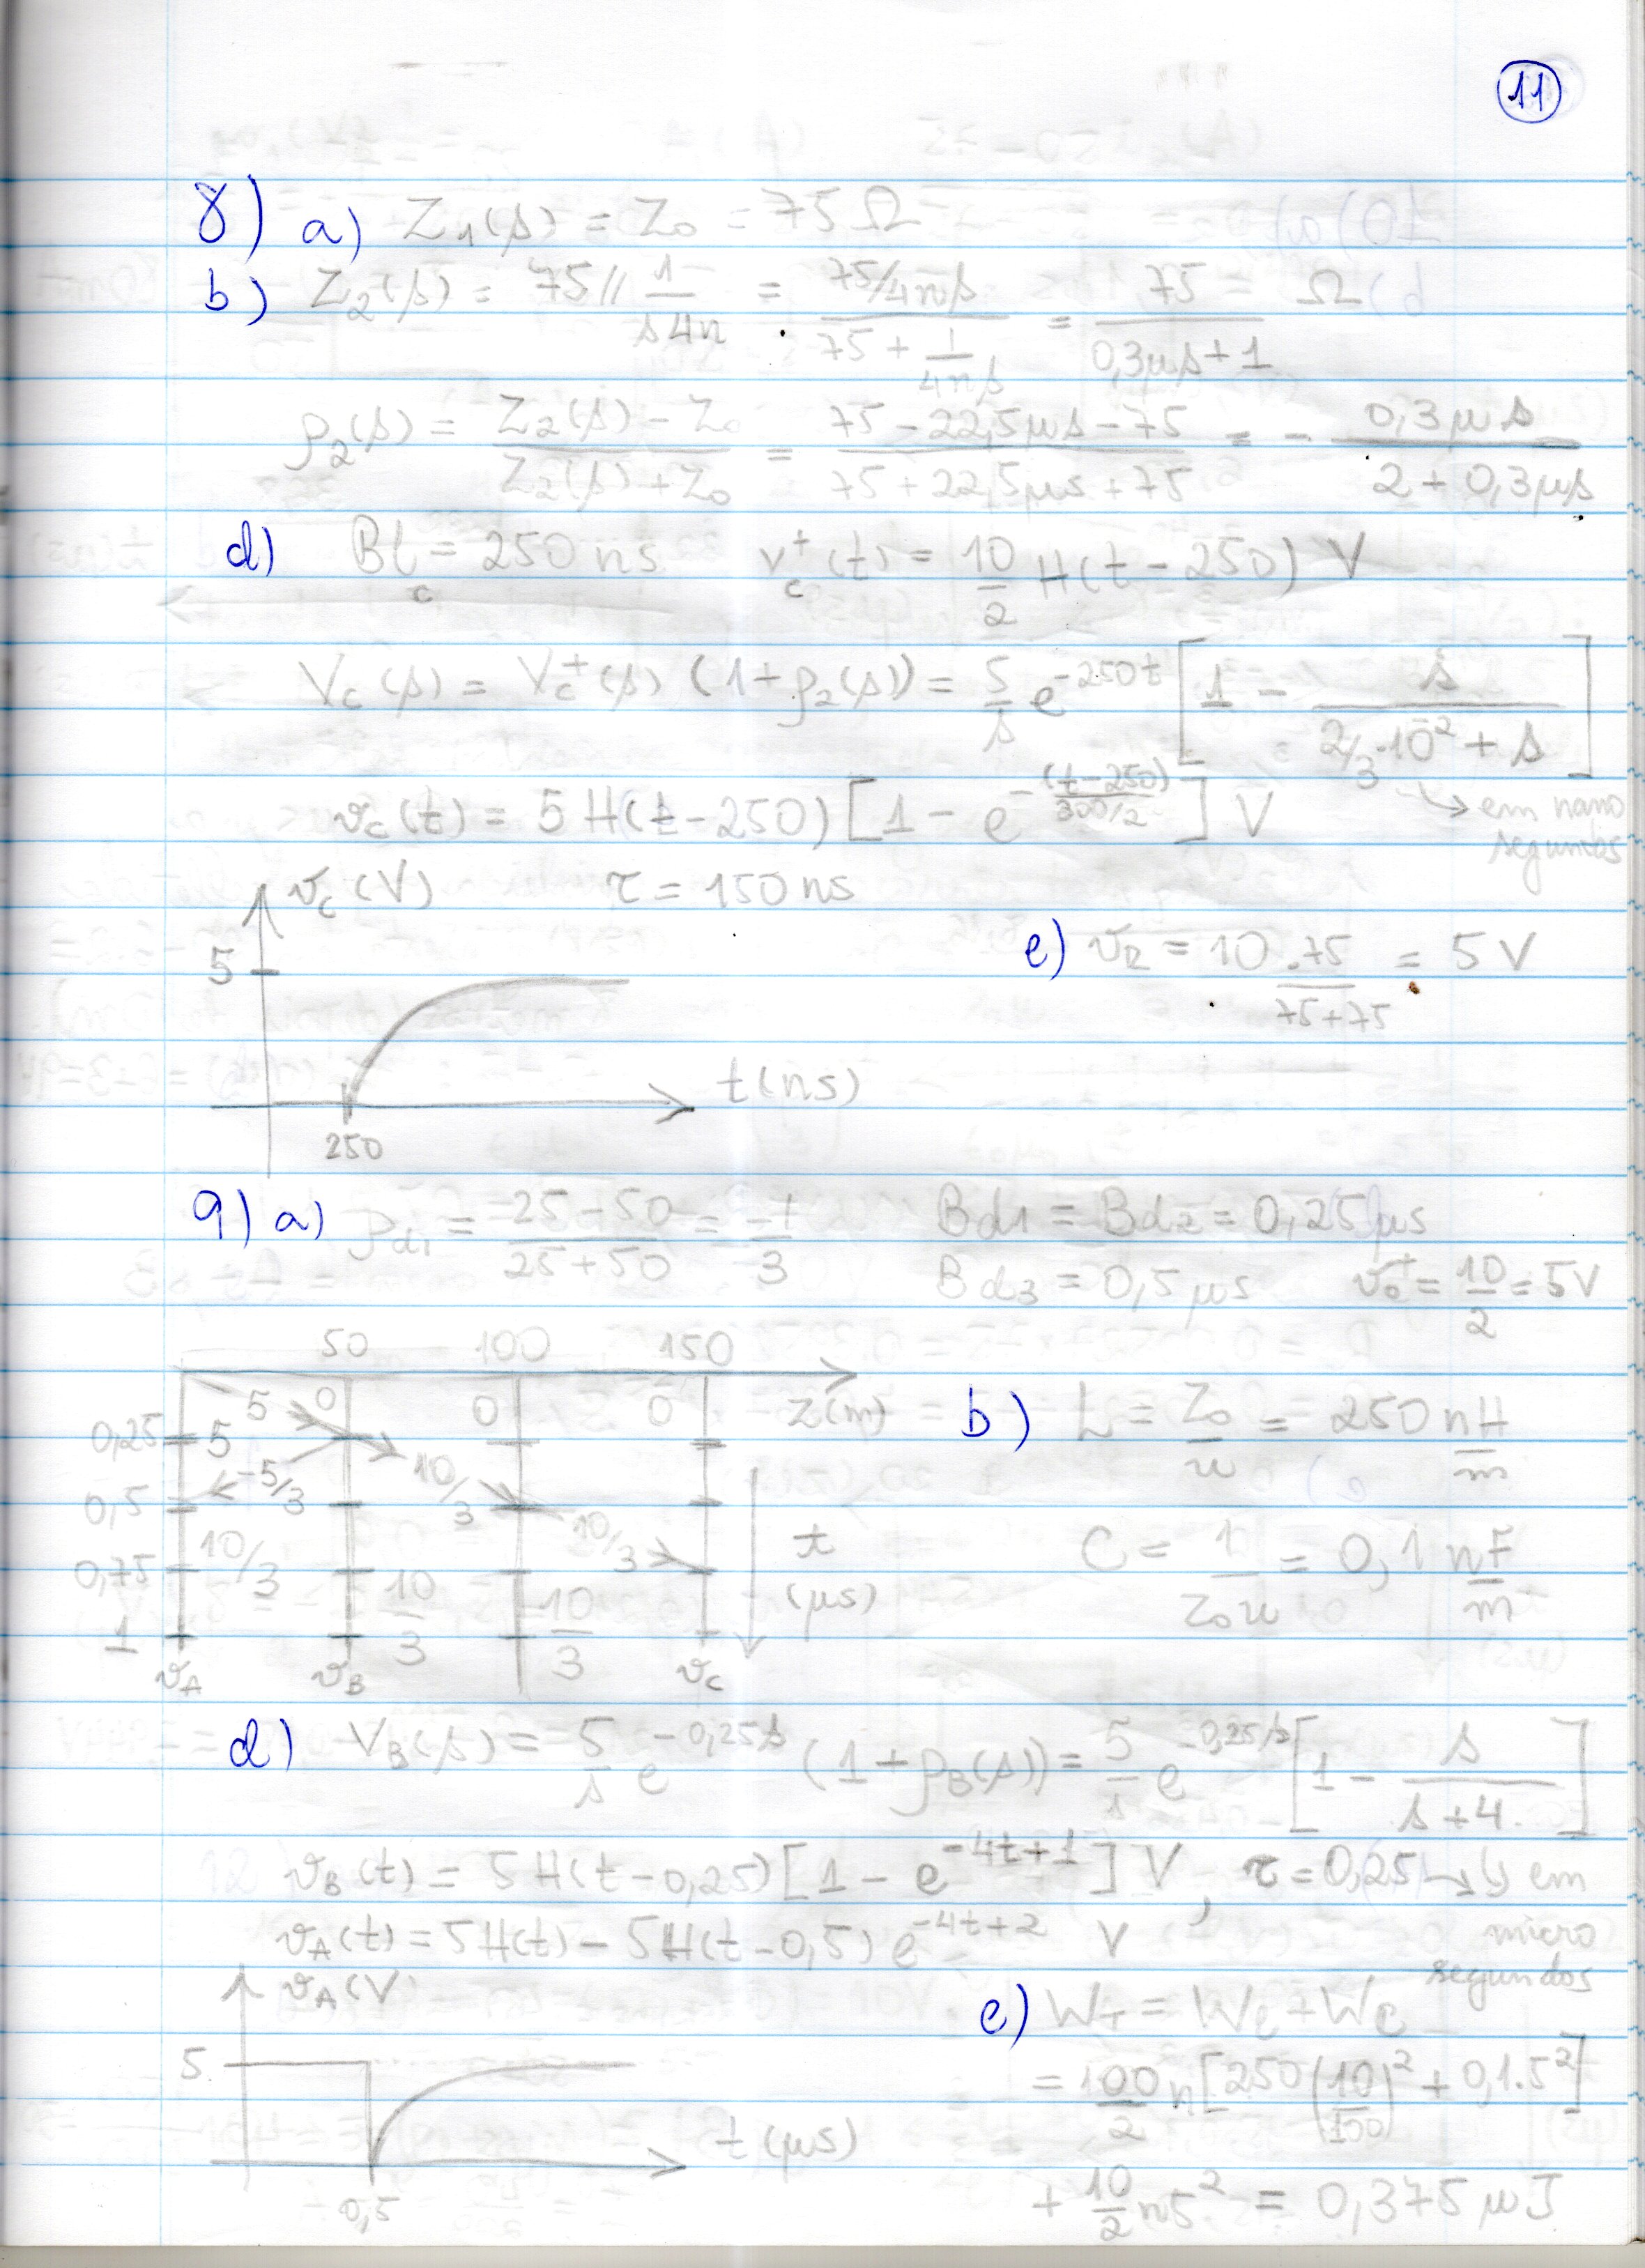 11
8) a) Z₁(s) = Z₀ = 75 Ω
b) Z₂(s) = 75 // 1/(s4n) = (75/4ns)/(75 + 1/(4ns)) = 75/(0,3μs+1) Ω
ρ₂(s) = (Z₂(s) − Z₀)/(Z₂(s) + Z₀) = (75 − 22,5μs − 75)/(75 + 22,5μs + 75) = − 0,3μs/(2 + 0,3μs)
d) Bl_c = 250 ns v_c⁺(t) = 10/2 H(t − 250) V
V_c(s) = V_c⁺(s) (1+ρ₂(s)) = 5/s e^(−250t) [1 − s/(2/3·10⁻² + s)]
→ em nano segundos
v_c(t) = 5 H(t−250) [1 − e^(−(t−250)/(300/2))] V
v_c (V) τ = 150 ns
5
t(ns)
250
e) v_R = 10 .75/(75+75) = 5 V
9) a) ρ_d1 = (25−50)/(25+50) = −1/3 Bd1 = Bd2 = 0,25μs
Bd3 = 0,5 μs v₀⁺ = 10/2 = 5V
50 100 150
z(m)
5 0 0 0
0,25 5
−5/3 10/3
0,5
10/3 10/3
0,75
10/3 10/3
1
v_A v_B v_C
t (μs)
b) L = Z₀/u = 250 nH/m
C = 1/(Z₀u) = 0,1 nF/m
d) V_B(s) = 5/s e^(−0,25s) (1+ρ_B(s)) = 5/s e^(−0,25s) [1 − s/(s+4)]
v_B(t) = 5 H(t−0,25) [1 − e^(−4t+1)] V , τ = 0,25 → em micro segundos
v_A(t) = 5H(t) − 5H(t−0,5) e^(−4t+2) V
v_A (V
5
t (μs)
0,5
e) W_T = W_l + W_C
= 100/2 n[250 (10/100)² + 0,1.5²]
+ 10/2 n5² = 0,375 μJ